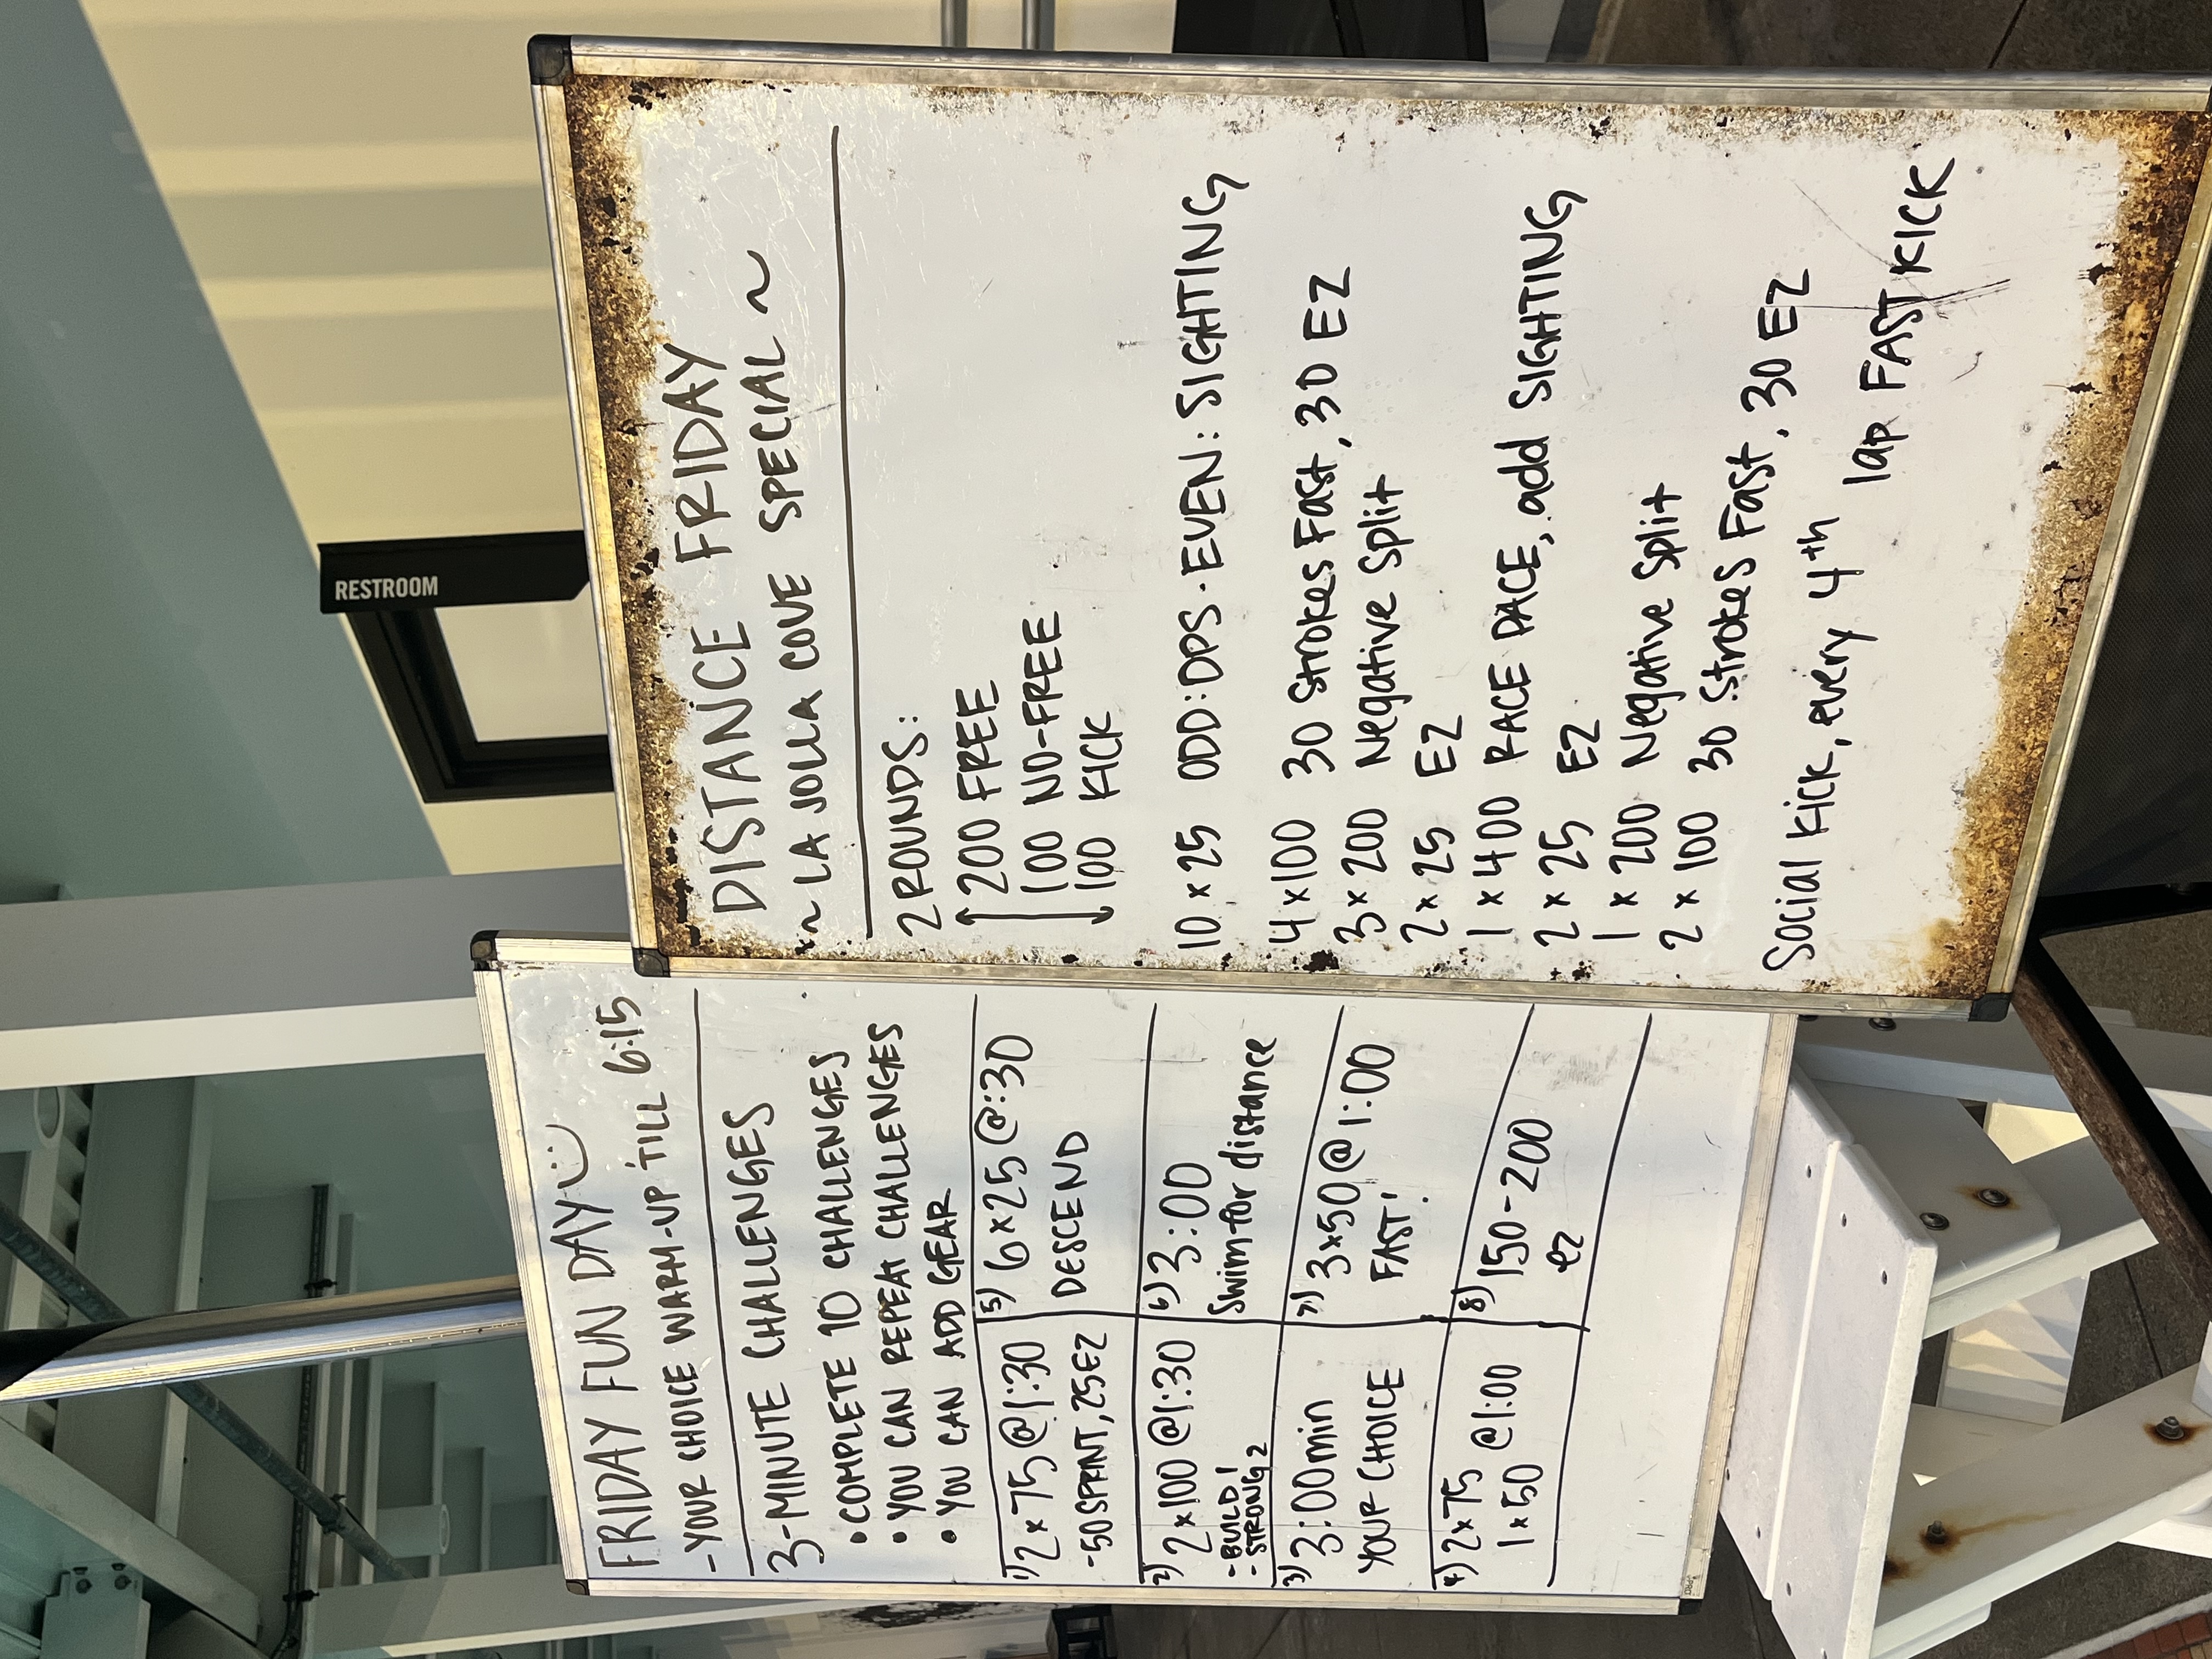 RESTROOM
FRIDAY FUN DAY
- YOUR CHOICE WARM-UP TILL 6:15
3-MINUTE CHALLENGES
• COMPLETE 10 CHALLENGES
• YOU CAN REPEAT CHALLENGES
• YOU CAN ADD GEAR
1) 2 x 75 @ 1:30
- 50 SPRINT, 25 EZ
2) 2 x 100 @ 1:30
- BUILD 1
- STRONG 2
3) 3:00 min
YOUR CHOICE
4) 2 x 75
1 x 50 @ 1:00
5) 6 x 25 @ :30
DESCEND
6) 3:00
Swim for distance
7) 3 x 50 @ 1:00
FAST!
8) 150-200
ez
DISTANCE FRIDAY
~ LA JOLLA COVE SPECIAL ~
2 ROUNDS:
200 FREE
100 NO-FREE
100 KICK
10 x 25 ODD: DPS · EVEN: SIGHTING
4 x 100 30 Strokes Fast, 30 EZ
3 x 200 Negative Split
2 x 25 EZ
1 x 400 RACE PACE, add SIGHTING
2 x 25 EZ
1 x 200 Negative Split
2 x 100 30 Strokes Fast, 30 EZ
Social Kick, every 4th lap FAST KICK